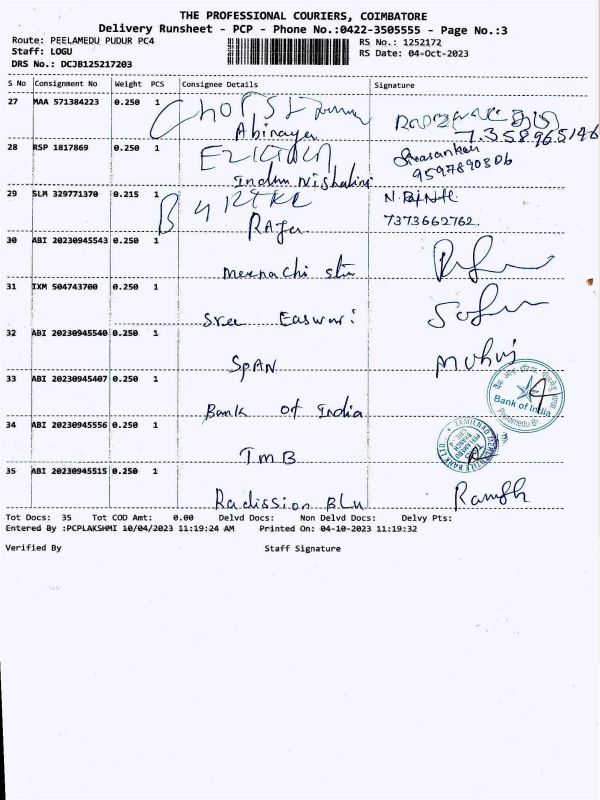 THE PROFESSIONAL COURIERS, COIMBATORE
Delivery Runsheet - PCP - Phone No.:0422-3505555 - Page No.:3
Route: PEELAMEDU PUDUR PC4
RS No.: 1252172
Staff: LOGU
RS Date: 04-Oct-2023
DRS No.: DCJB125217203
S No Consignment No Weight PCS Consignee Details Signature
27 MAA 571384223 0.250 1
Abinaya
28 RSP 1817869 0.250 1
Indhu Nishalini
9597890306
29 SLM 329771370 0.215 1
Raja
7373662762.
30 ABI 20230945543 0.250 1
Meenachi
31 IXM 504743700 0.250 1
Sree Easwari
32 ABI 20230945540 0.250 1
SPAN
33 ABI 20230945407 0.250 1
Bank of India
Bank of India
Peelamedu Br.
34 ABI 20230945556 0.250 1
TMB
TAMILNAD MERCANTILE BANK LTD
35 ABI 20230945515 0.250 1
Radission Blu
Tot Docs: 35 Tot COD Amt: 0.00 Delvd Docs: Non Delvd Docs: Delvy Pts:
Entered By :PCPLAKSHMI 10/04/2023 11:19:24 AM Printed On: 04-10-2023 11:19:32
Verified By Staff Signature